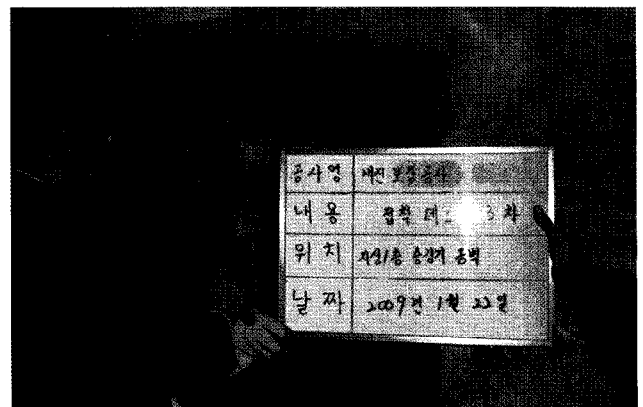 공사명 내진 보강 공사
내용 접착 테 3차
위치 지상1층 승강기 옹벽
날짜 2009년 1월 22일